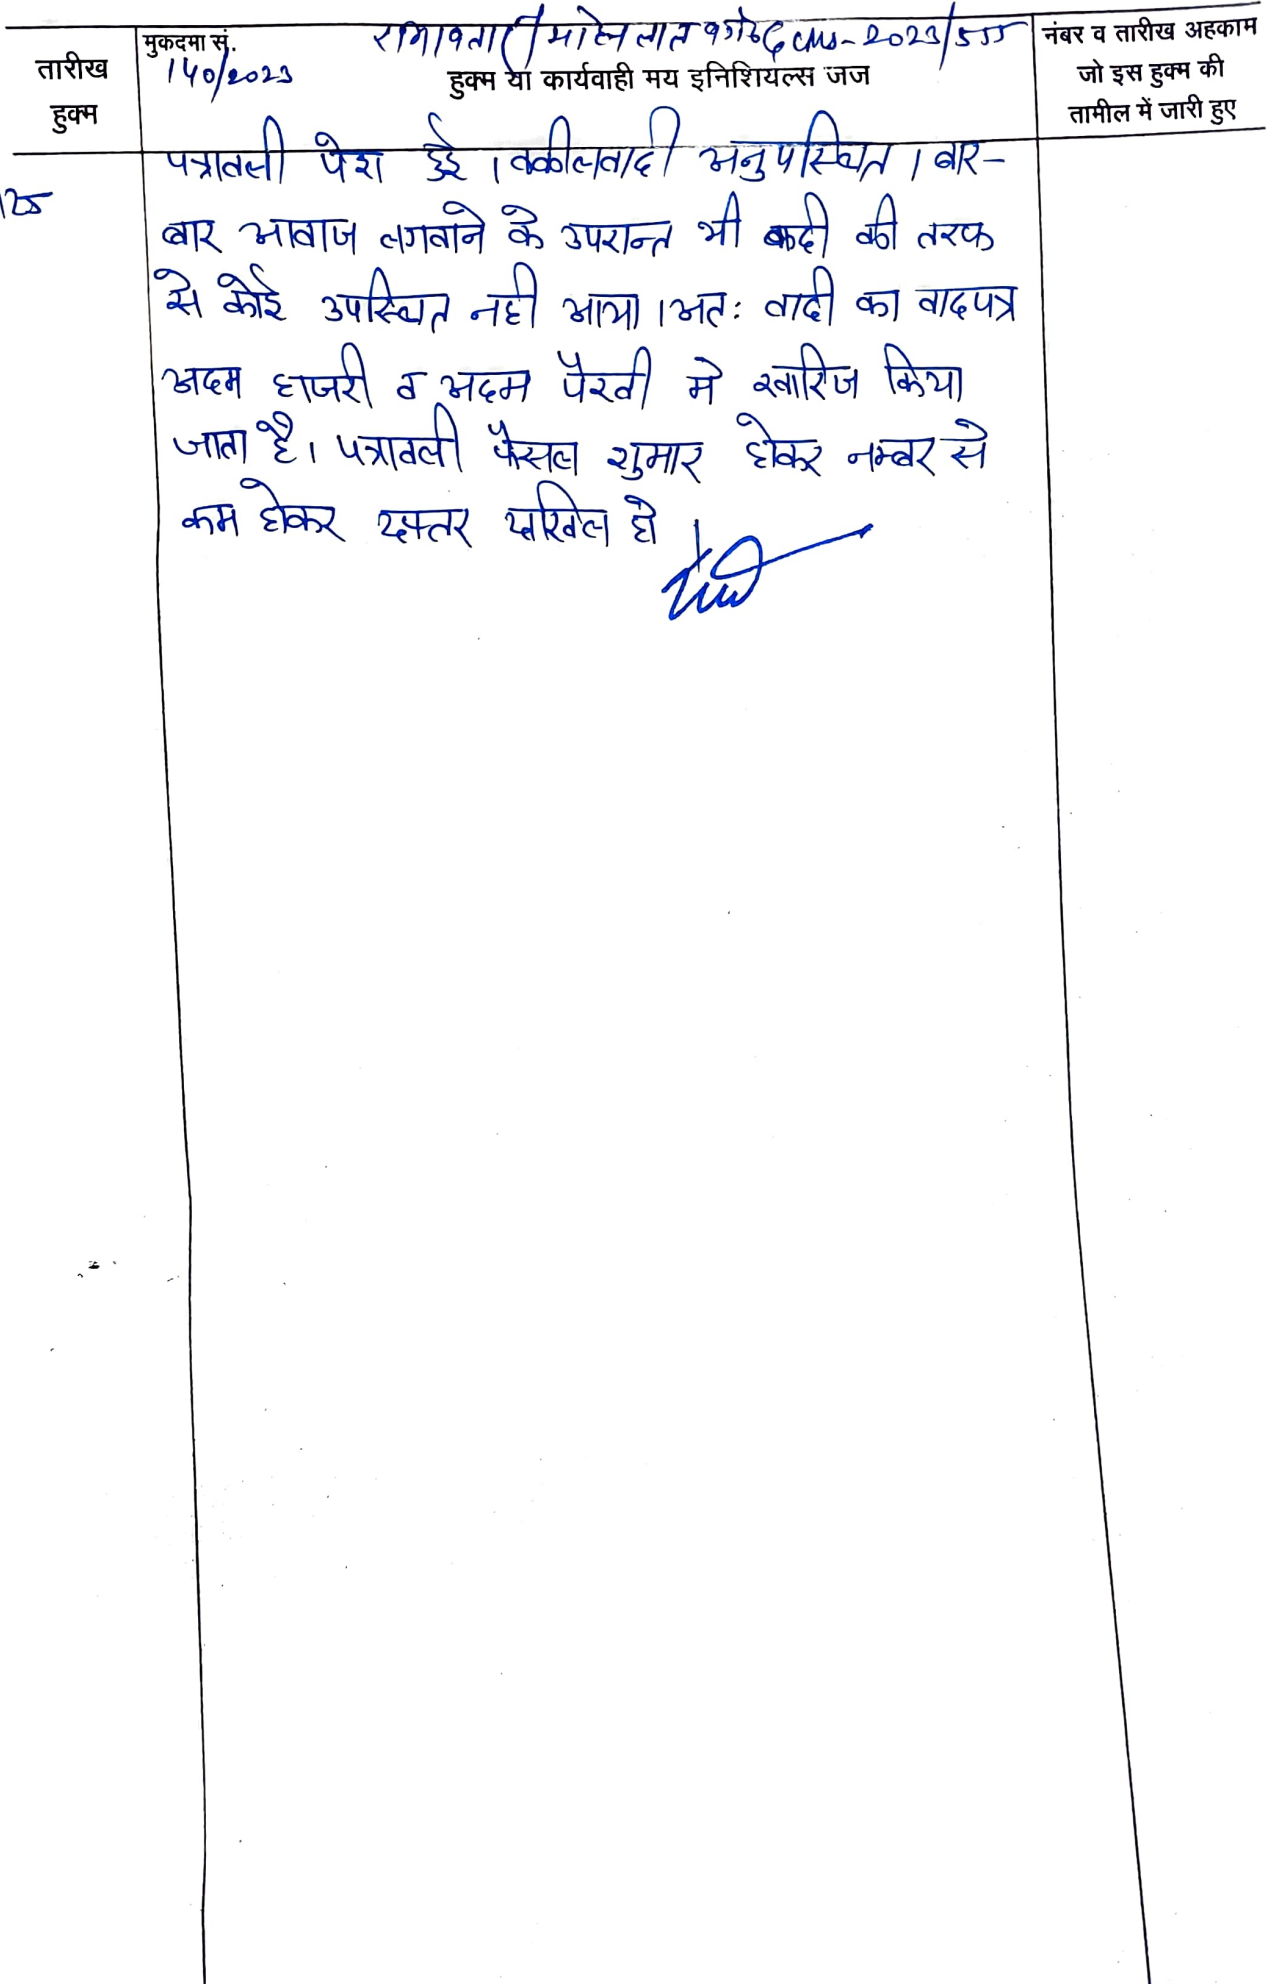 तारीख
हुक्म
मुकदमा सं.
140/2023
रामावतार / मोहन लाल वगैरह cms-2023/555
हुक्म या कार्यवाही मय इनिशियल्स जज
नंबर व तारीख अहकाम
जो इस हुक्म की
तामील में जारी हुए
125
पत्रावली पेश हुई । वकीलवादी अनुपस्थित । बार-
बार आवाज लगवाने के उपरान्त भी वादी की तरफ
से कोई उपस्थित नही आया । अतः वादी का वादपत्र
अदम हाजरी व अदम पैरवी मे खारिज किया
जाता है । पत्रावली फैसल शुमार होकर नम्बर से
कम होकर दफ्तर दाखिल हो ।